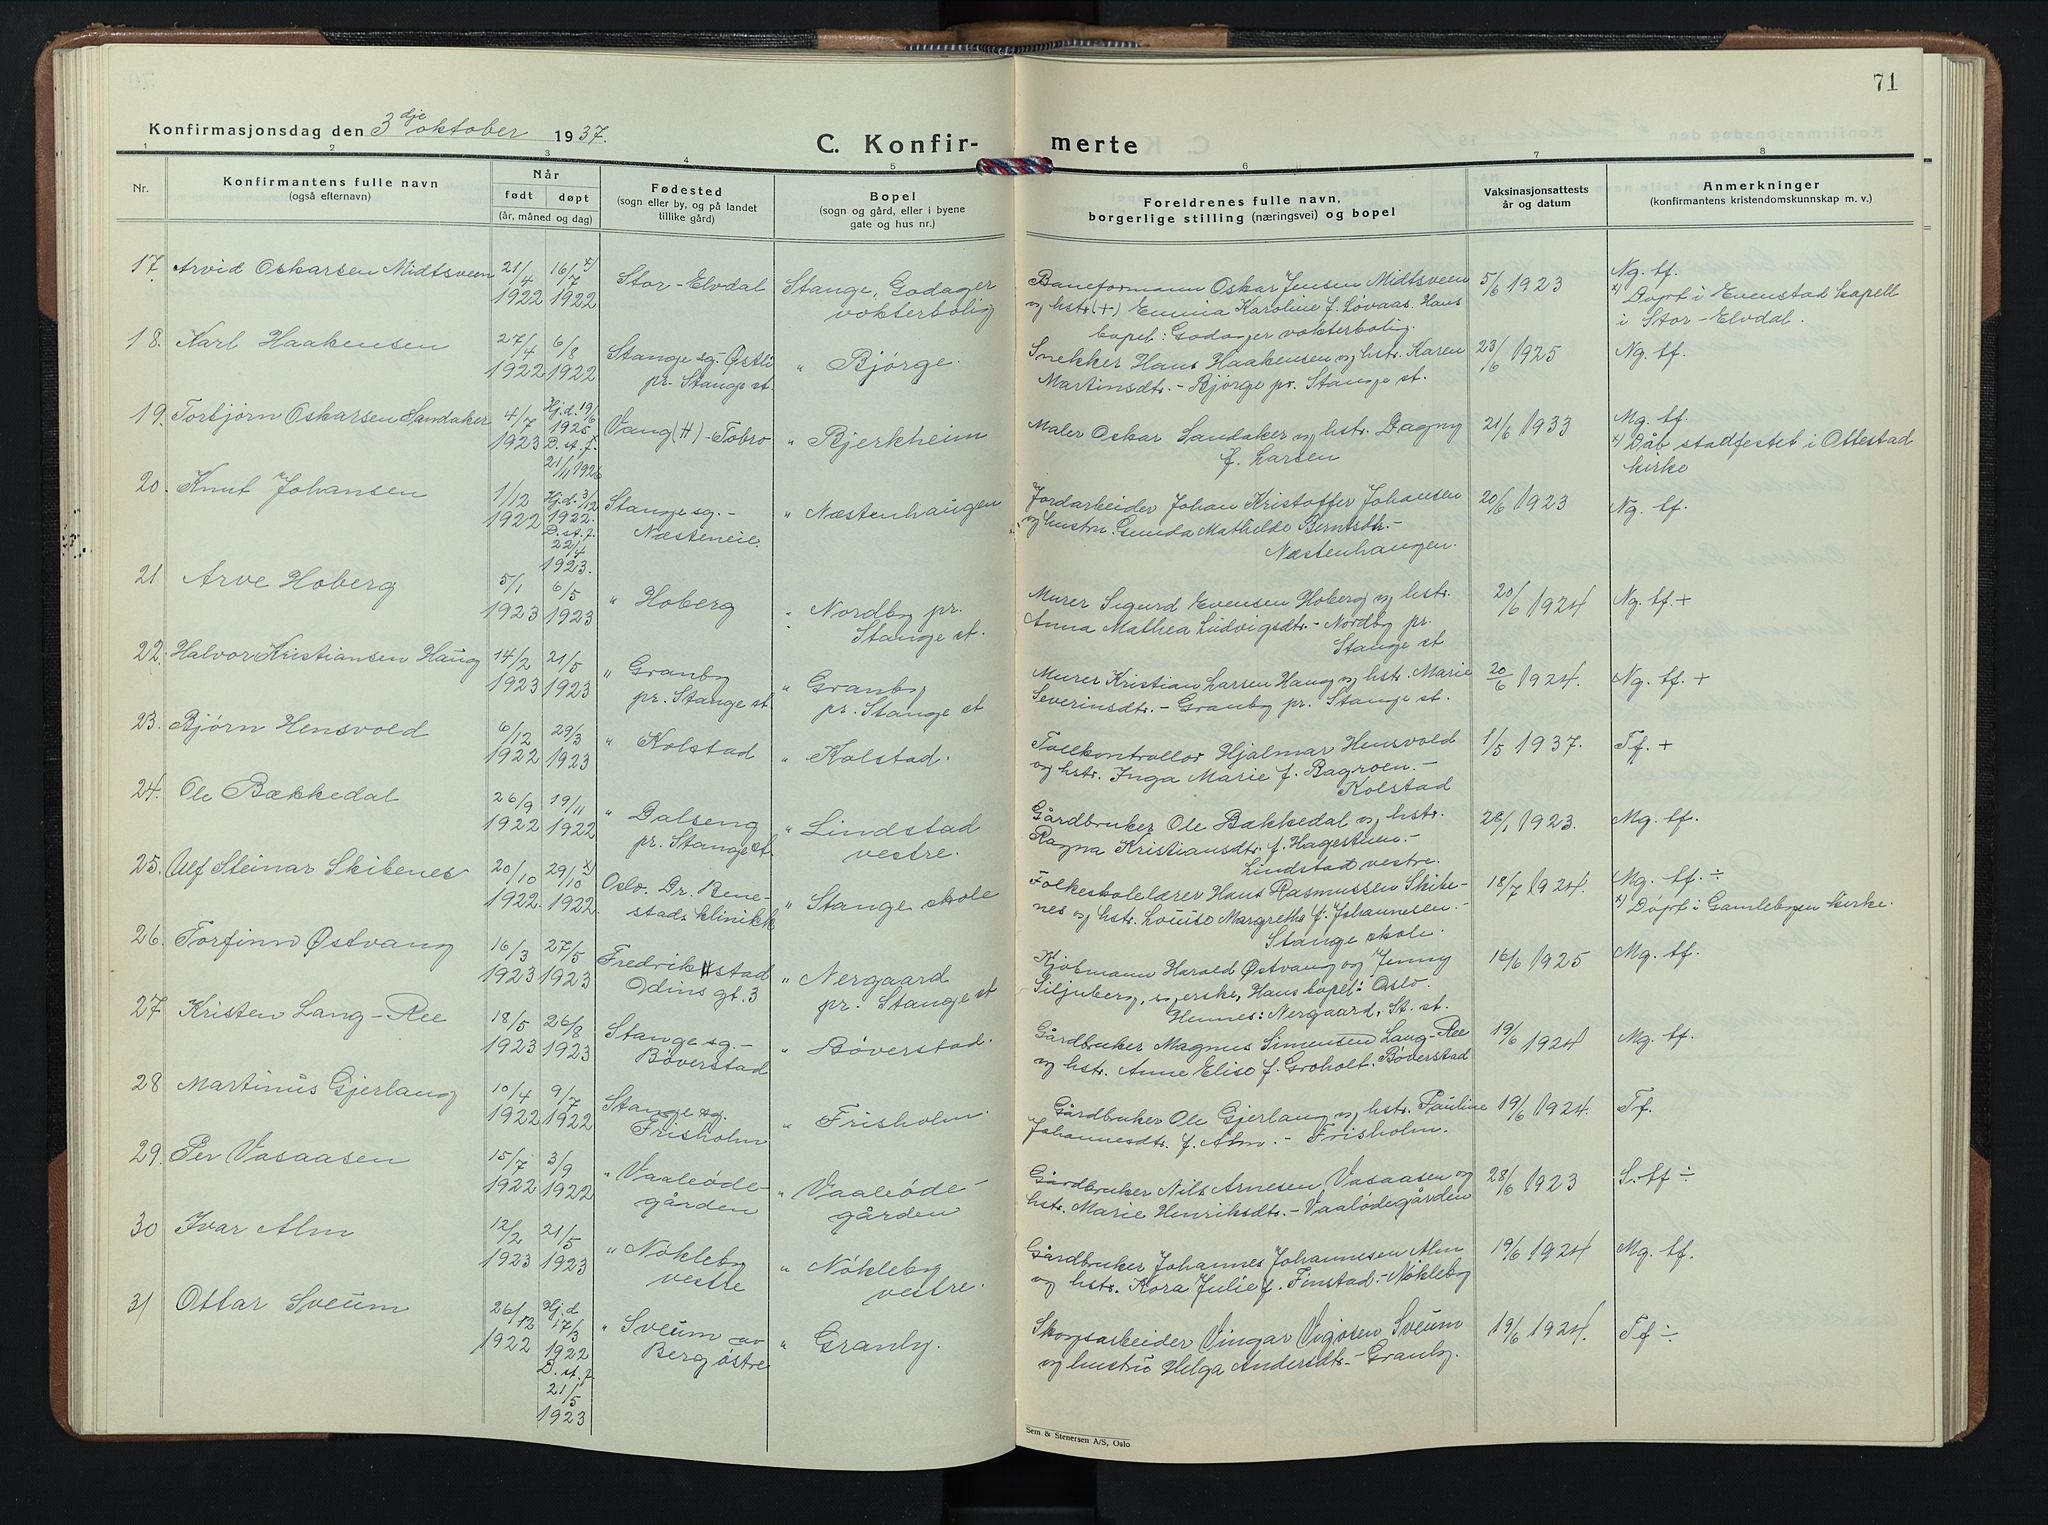 71
Konfirmasjonsdag den 3dje oktober 1937.
C. Konfir-
merte
1 2 3 4 5 6 7 8
Nr.
Konfirmantens fulle navn
(også efternavn)
Når
født døpt
(år, måned og dag)
Fødested
(sogn eller by, og på landet
tillike gård)
Bopel
(sogn og gård, eller i byene
gate og hus nr.)
Foreldrenes fulle navn,
borgerlige stilling (næringsvei) og bopel
Vaksinasjonsattests
år og datum
Anmerkninger
(konfirmantens kristendomskunnskap m. v.)
17. Arvid Oskarsen Midtsveen 21/4 1922 16/7 x) 1922 Stor-Elvdal Stange, Godager
vokterbolig
Baneformann Oskar Jensen Midtsveen 5/6 1923 Ng. tf.
og hstr. (+) Emma Karoline f. Løvaas. Hans x) Døpt i Evenstad kapell
bopel: Godager vokterbolig. i Stor-Elvdal.
18. Karl Haakensen 27/4 1922 6/8 1922 Stange sg. Østli
pr. Stange st. " Bjørge.
Snekker Hans Haakensen og hstr. Karen 23/6 1925 Ng. tf.
Martinsdtr. - Bjørge pr. Stange st.
19. Torbjørn Oskarsen Sandaker 4/7 1923 Hj.d. 19/6 1925 D. st. f. 21/11 1926 Vang (H) - Tobro " Bjerkheim
Maler Oskar Sandaker og hstr. Dagny 21/6 1933 Mg. tf.
f. Larsen x) Dåb stadfestet i Ottestad
kirke
20. Knut Johansen 1/12 1922 Hj.d. 3/12 1922. D. st. f. 22/4 1923. Stange sg. -
Næsteneie. " Næstenhaugen
Jordarbeider Johan Kristoffer Johansen 20/6 1923 Ng. tf.
og hustru Gunda Mathilde Berntsdtr. -
Næstenhaugen.
21 Arve Hoberg 5/1 1923 6/5 1923 " Hoberg " Nordby pr.
Stange st.
Murer Sigurd Evensen Hoberg og hstr. 20/6 1924 Ng. tf. +
Anna Mathea Ludvigsdtr. - Nordby pr.
Stange st
22. Halvor Kristiansen Haug 14/2 1923 21/5 1923 " Granby
pr. Stange st. " Granby
pr. Stange st
Murer Kristian Larsen Haug og hstr. Marie 20/6 1924. Ng. tf. +
Severinsdtr. - Granby pr. Stange st.
23. Bjørn Hensvold 6/12 1922 29/3 1923 " Kolstad " Kolstad.
Tollkontrollør Hjalmar Hensvold 1/5 1937. Tf. +
og hstr. Inga Marie f. Bagroen. -
Kolstad
24. Ole Bækkedal 26/9 1922 19/11 1922 " Dalseng
pr. Stange st. " Lindstad
vestre.
Gårdbruker Ole Bækkedal og hstr. 1923. Mg. tf.
Ragna Kristiansdtr. f. Hagestuen. -
Lindstad vestre.
25. Ulf Steinar Skibenes 20/10 1922. 29/10 x) 1922. Oslo. Dr. Bene-
stads klinikk " Stange skole
Folkeskolelærer Hans Rasmussen Skibe- 18/7 1924. Mg. tf. ÷
nes og hstr. Louise Margrethe f. Johannesen. - x) Døpt i Gamlebyen kirke.
Stange skole.
26. Torfinn Østvang 16/3 1923 27/5 1923 Fredrikstad
Odins gt. 3 " Nergaard
pr. Stange st
Kjøbmann Harald Østvang og Jenny 16/6 1925 Mg. tf.
Siljuberg, Hans bopel: Oslo.
Hennes: Nergaard, St. st.
27 Kristen Lang-Ree 18/5 1923 26/8 1923 Stange sg. -
Bøverstad " Bøverstad.
Gårdbruker Magnus Simensen Lang-Ree 19/6 1924 Mg. tf.
og hstr. Anne Elise f. Groholt. Bøverstad
28 Martinus Gjerlang 10/4 1922 9/7 1922 Stange sg.
Frisholm " Frisholm.
Gårdbruker Ole Gjerlang og hstr. Pauline 19/6 1924. Tf.
Johannesdtr. f. Alm. - Frisholm.
29. Per Vasaasen 15/7 1922 3/9 1922 " Vaaleøde-
gården " Vaaleøde-
gården
Gårdbruker Nils Arnesen Vasaasen og 28/6 1923 S. tf ÷
hstr. Marie Henriksdtr. - Vaalødegården
30 Ivar Alm 12/2 1923 21/5 1923 " Nøkleby
vestre " Nøkleby
vestre.
Gårdbruker Johannes Johannesen Alm 19/6 1924 Mg. tf.
og hstr. Kora Julie f. Finstad. - Nøkleby
31 Ottar Sveum 26/12 1922 Hj.d 17/3 1922 D. st. f 21/5 1923 " Sveum av
Berg østre " Granby.
Skogsarbeider Vingar Vigosen Sveum 19/6 1924. Tf ÷
og hustru Helga Andersdtr. - Granby.
Sem & Stenersen A/S, Oslo